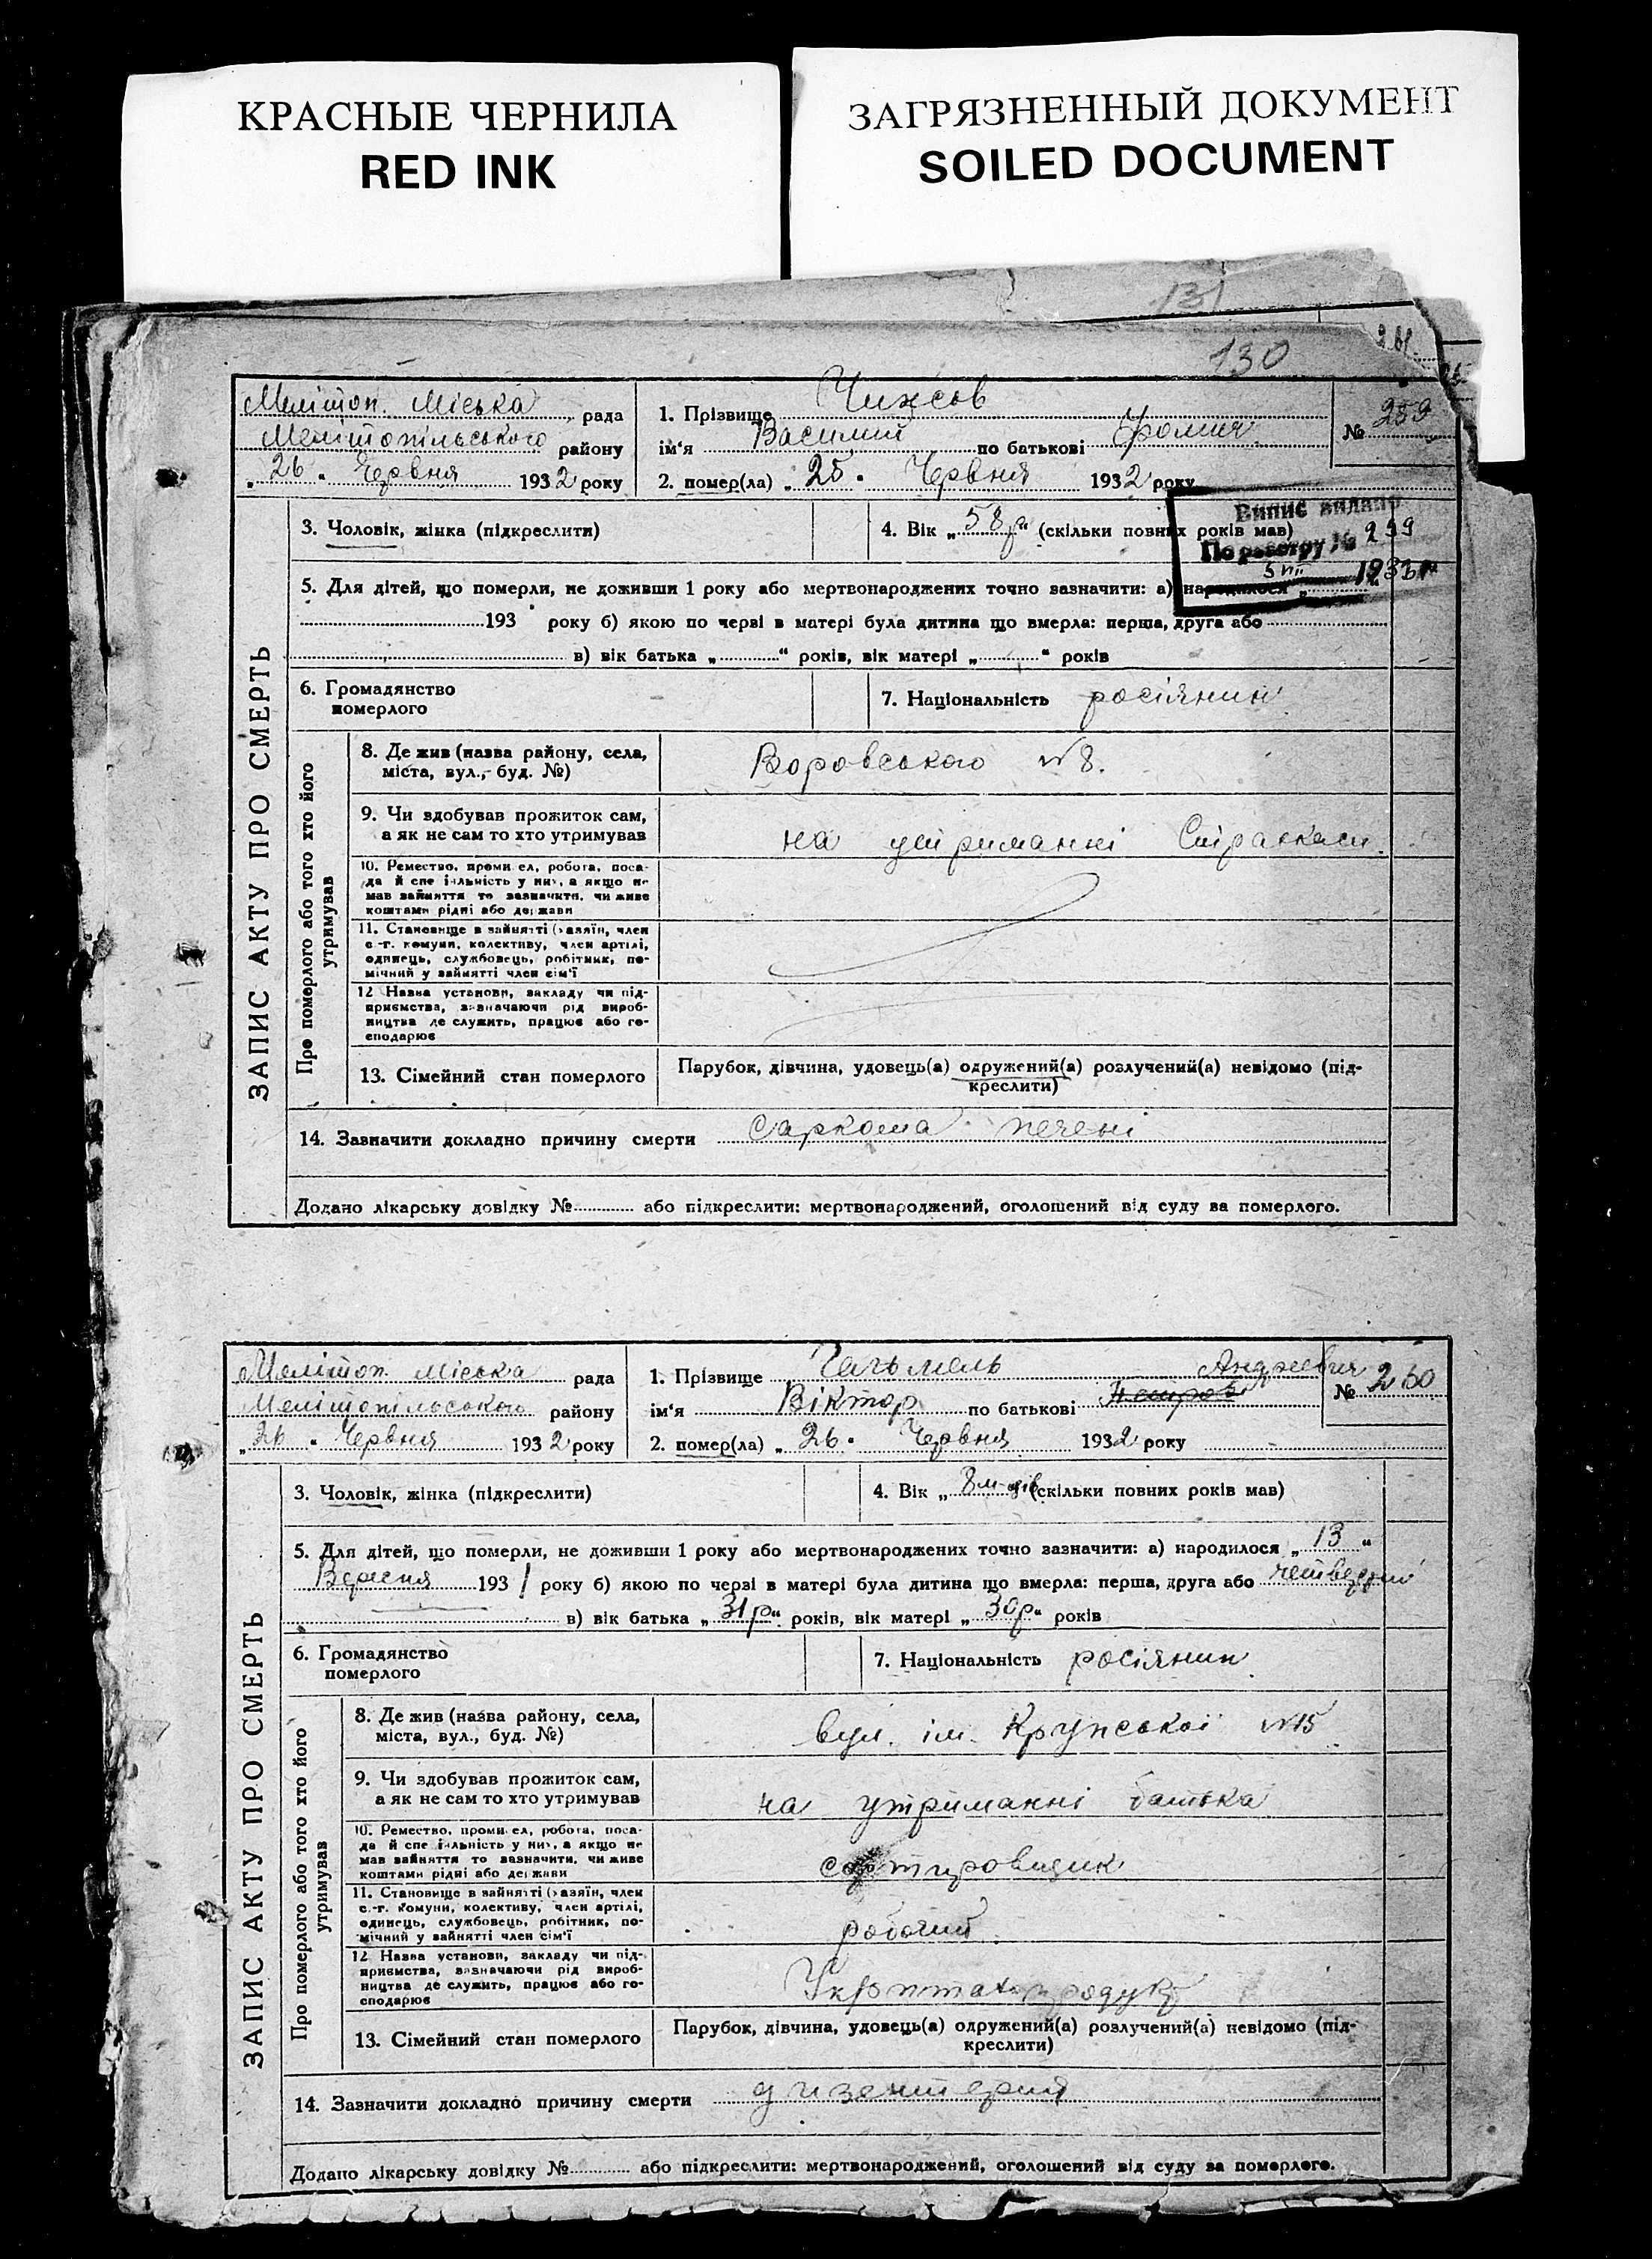 КРАСНЫЕ ЧЕРНИЛА
RED INK
ЗАГРЯЗНЕННЫЙ ДОКУМЕНТ
SOILED DOCUMENT
131
130
Мелітоп. Міська рада
Мелітопільського району
„26“ Червня 1932 року
1. Прізвище Чижов
ім'я Василий по батькові Фомич
2. помер(ла) „25“ Червня 1932 року
№ 259
Випис видано
По реєстру № 299
3. Чоловік, жінка (підкреслити)
4. Вік „58р“ (скільки повних років мав)
5. Для дітей, що померли, не доживши 1 року або мертвонароджених точно зазначити: а) народилося „
193 року б) якою по черзі в матері була дитина що вмерла: перша, друга або
в) вік батька „ “ років, вік матері „ “ років
6. Громадянство померлого
7. Національність росіянин
ЗАПИС АКТУ ПРО СМЕРТЬ
Про померлого або того хто його утримував
8. Де жив (назва району, села, міста, вул., буд. №)
Воровського №8.
9. Чи здобував прожиток сам, а як не сам то хто утримував
на утриманні Страхкаси
10. Ремество, промисел, робота, посада й спеціальність у них, а якщо не мав зайняття то зазначити, чи живе коштами рідні або держави
11. Становище в зайнятті (хазяїн, член с.-г. комуни, колективу, член артілі, одинець, службовець, робітник, помічний у зайнятті член сім'ї
12 Назва установи, закладу чи підприємства, зазначаючи рід виробництва де служить, працює або господарює
13. Сімейний стан померлого
Парубок, дівчина, удовець(а) одружений(а) розлучений(а) невідомо (підкреслити)
14. Зазначити докладно причину смерти саркома печені
Додано лікарську довідку № або підкреслити: мертвонароджений, оголошений від суду за померлого.
Мелітоп. Міська рада
Мелітопільського району
„26“ Червня 1932 року
1. Прізвище
Андреевич
ім'я Віктор по батькові
2. помер(ла) „26“ Червня 1932 року
№ 260
3. Чоловік, жінка (підкреслити)
4. Вік „8 м-ців (скільки повних років мав)
5. Для дітей, що померли, не доживши 1 року або мертвонароджених точно зазначити: а) народилося „13“
Вересня 1931 року б) якою по черзі в матері була дитина що вмерла: перша, друга або
в) вік батька „31р“ років, вік матері „30р“ років
6. Громадянство померлого
7. Національність росіянин
ЗАПИС АКТУ ПРО СМЕРТЬ
Про померлого або того хто його утримував
8. Де жив (назва району, села, міста, вул., буд. №)
вул. ім. Крупської №15
9. Чи здобував прожиток сам, а як не сам то хто утримував
на утриманні батька
10. Ремество, промисел, робота, посада й спеціальність у них, а якщо не мав зайняття то зазначити, чи живе коштами рідні або держави
сортировщик
11. Становище в зайнятті (хазяїн, член с.-г. комуни, колективу, член артілі, одинець, службовець, робітник, помічний у зайнятті член сім'ї
робочий
12 Назва установи, закладу чи підприємства, зазначаючи рід виробництва де служить, працює або господарює
Укрптахопродукт
13. Сімейний стан померлого
Парубок, дівчина, удовець(а) одружений(а) розлучений(а) невідомо (підкреслити)
14. Зазначити докладно причину смерти дизентерия
Додано лікарську довідку № або підкреслити: мертвонароджений, оголошений від суду за померлого.